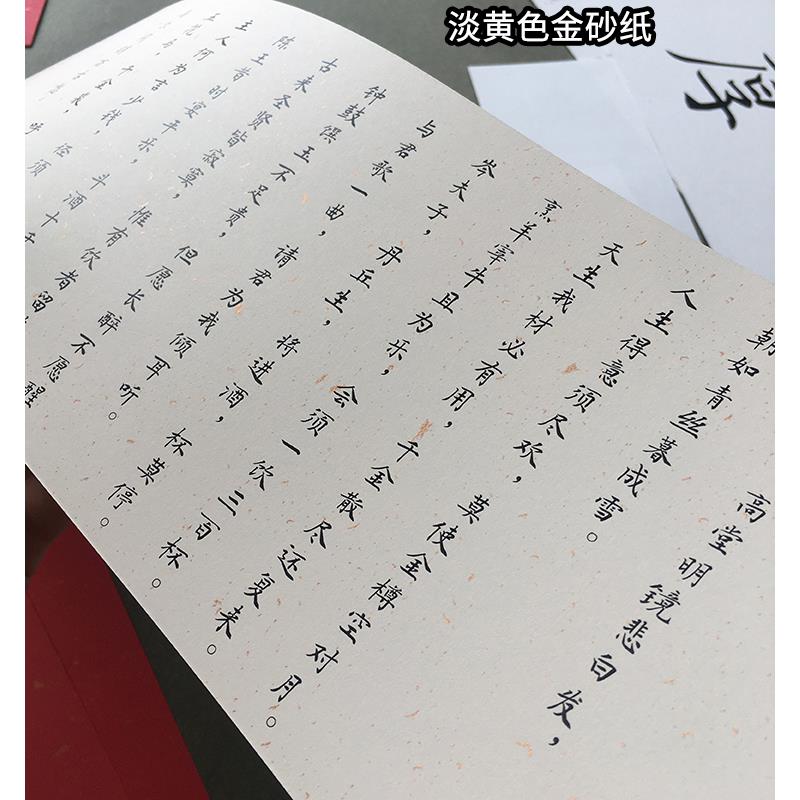 淡黄色金砂纸
高堂明镜悲白发，
朝如青丝暮成雪。
人生得意须尽欢，莫使金樽空对月。
天生我材必有用，千金散尽还复来。
烹羊宰牛且为乐，会须一饮三百杯。
岑夫子，丹丘生，将进酒，杯莫停。
与君歌一曲，请君为我倾耳听。
钟鼓馔玉不足贵，但愿长醉不愿醒
古来圣贤皆寂寞，惟有饮者留
陈王昔时宴平乐，斗酒十千
主人何为言少钱，径须
千金裘，呼